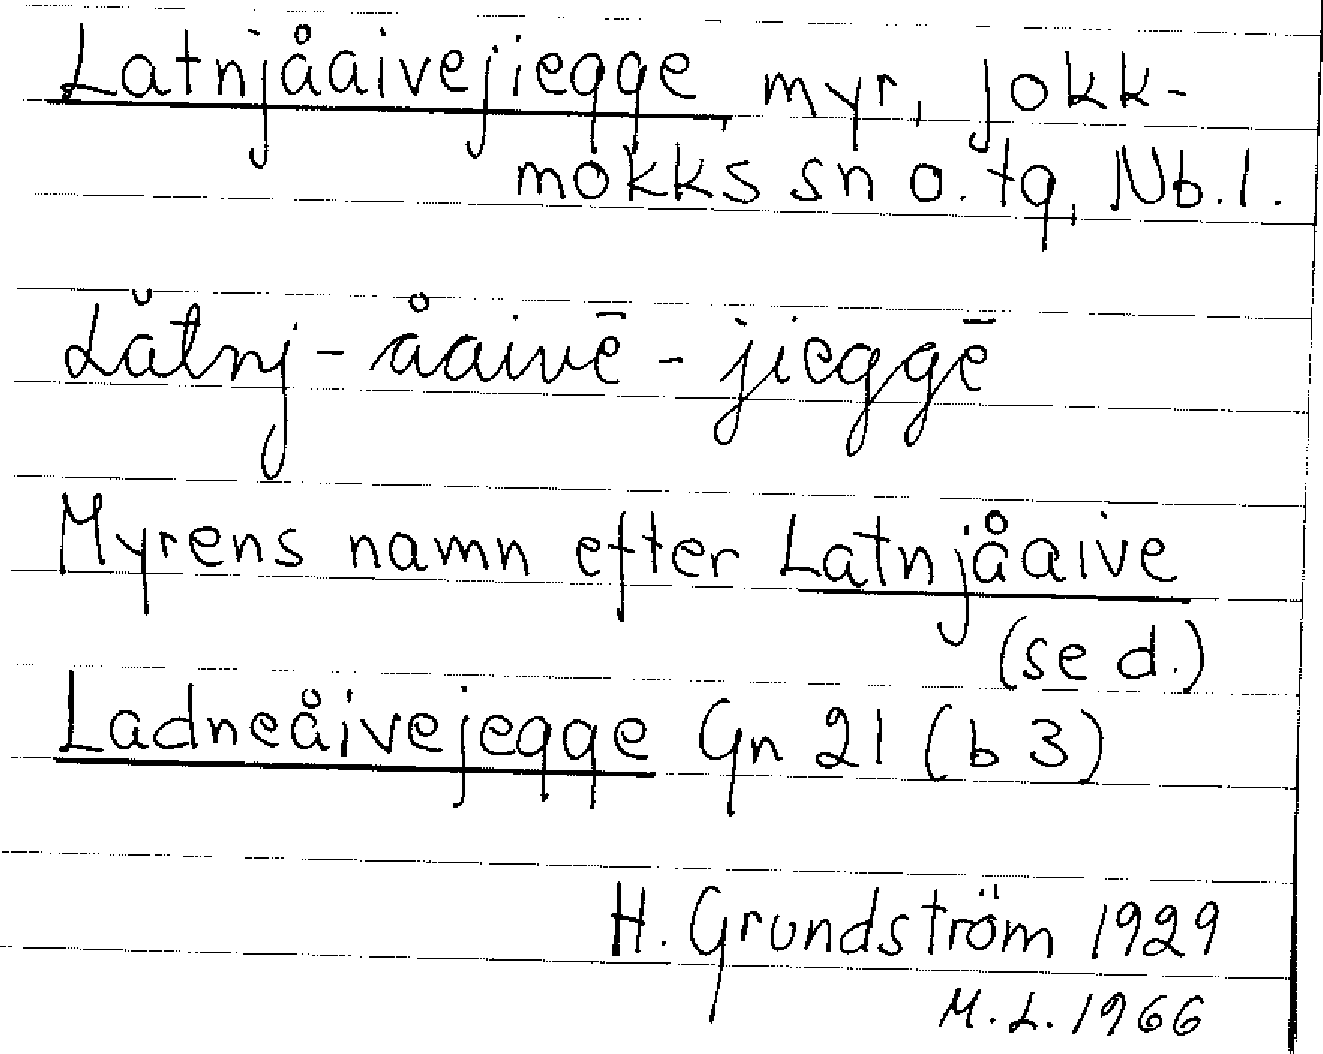 Latnjåaivejiegge myr, Jokk-
mokks sn o. tg, Nb. l.
Lătnj - åaivē - jieggē
Myrens namn efter Latnjåaive
(se d.)
Ladneåivejegge Gn 21 (b 3)
H. Grundström 1929
M. L. 1966